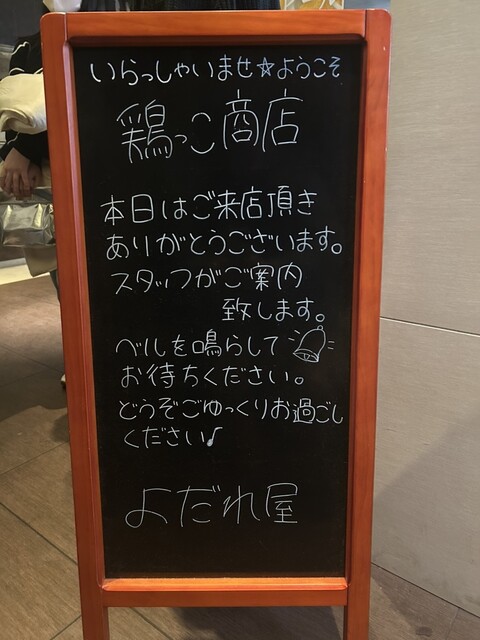 いらっしゃいませ☆ようこそ
鶏っこ商店
本日はご来店頂き
ありがとうございます。
スタッフがご案内
致します。
ベルを鳴らして
お待ちください。
どうぞごゆっくりお過ごし
ください♪
よだれ屋